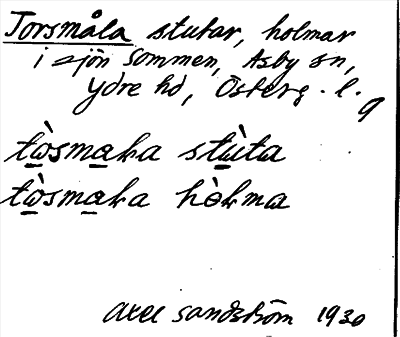 Torsmåla stutar, holmar
i sjön Sommen, Asby sn,
Ydre hd, Österg. l.
9
tὼsmaka stὼta
tὼsmaka hòlma
Axel Sandström 1930